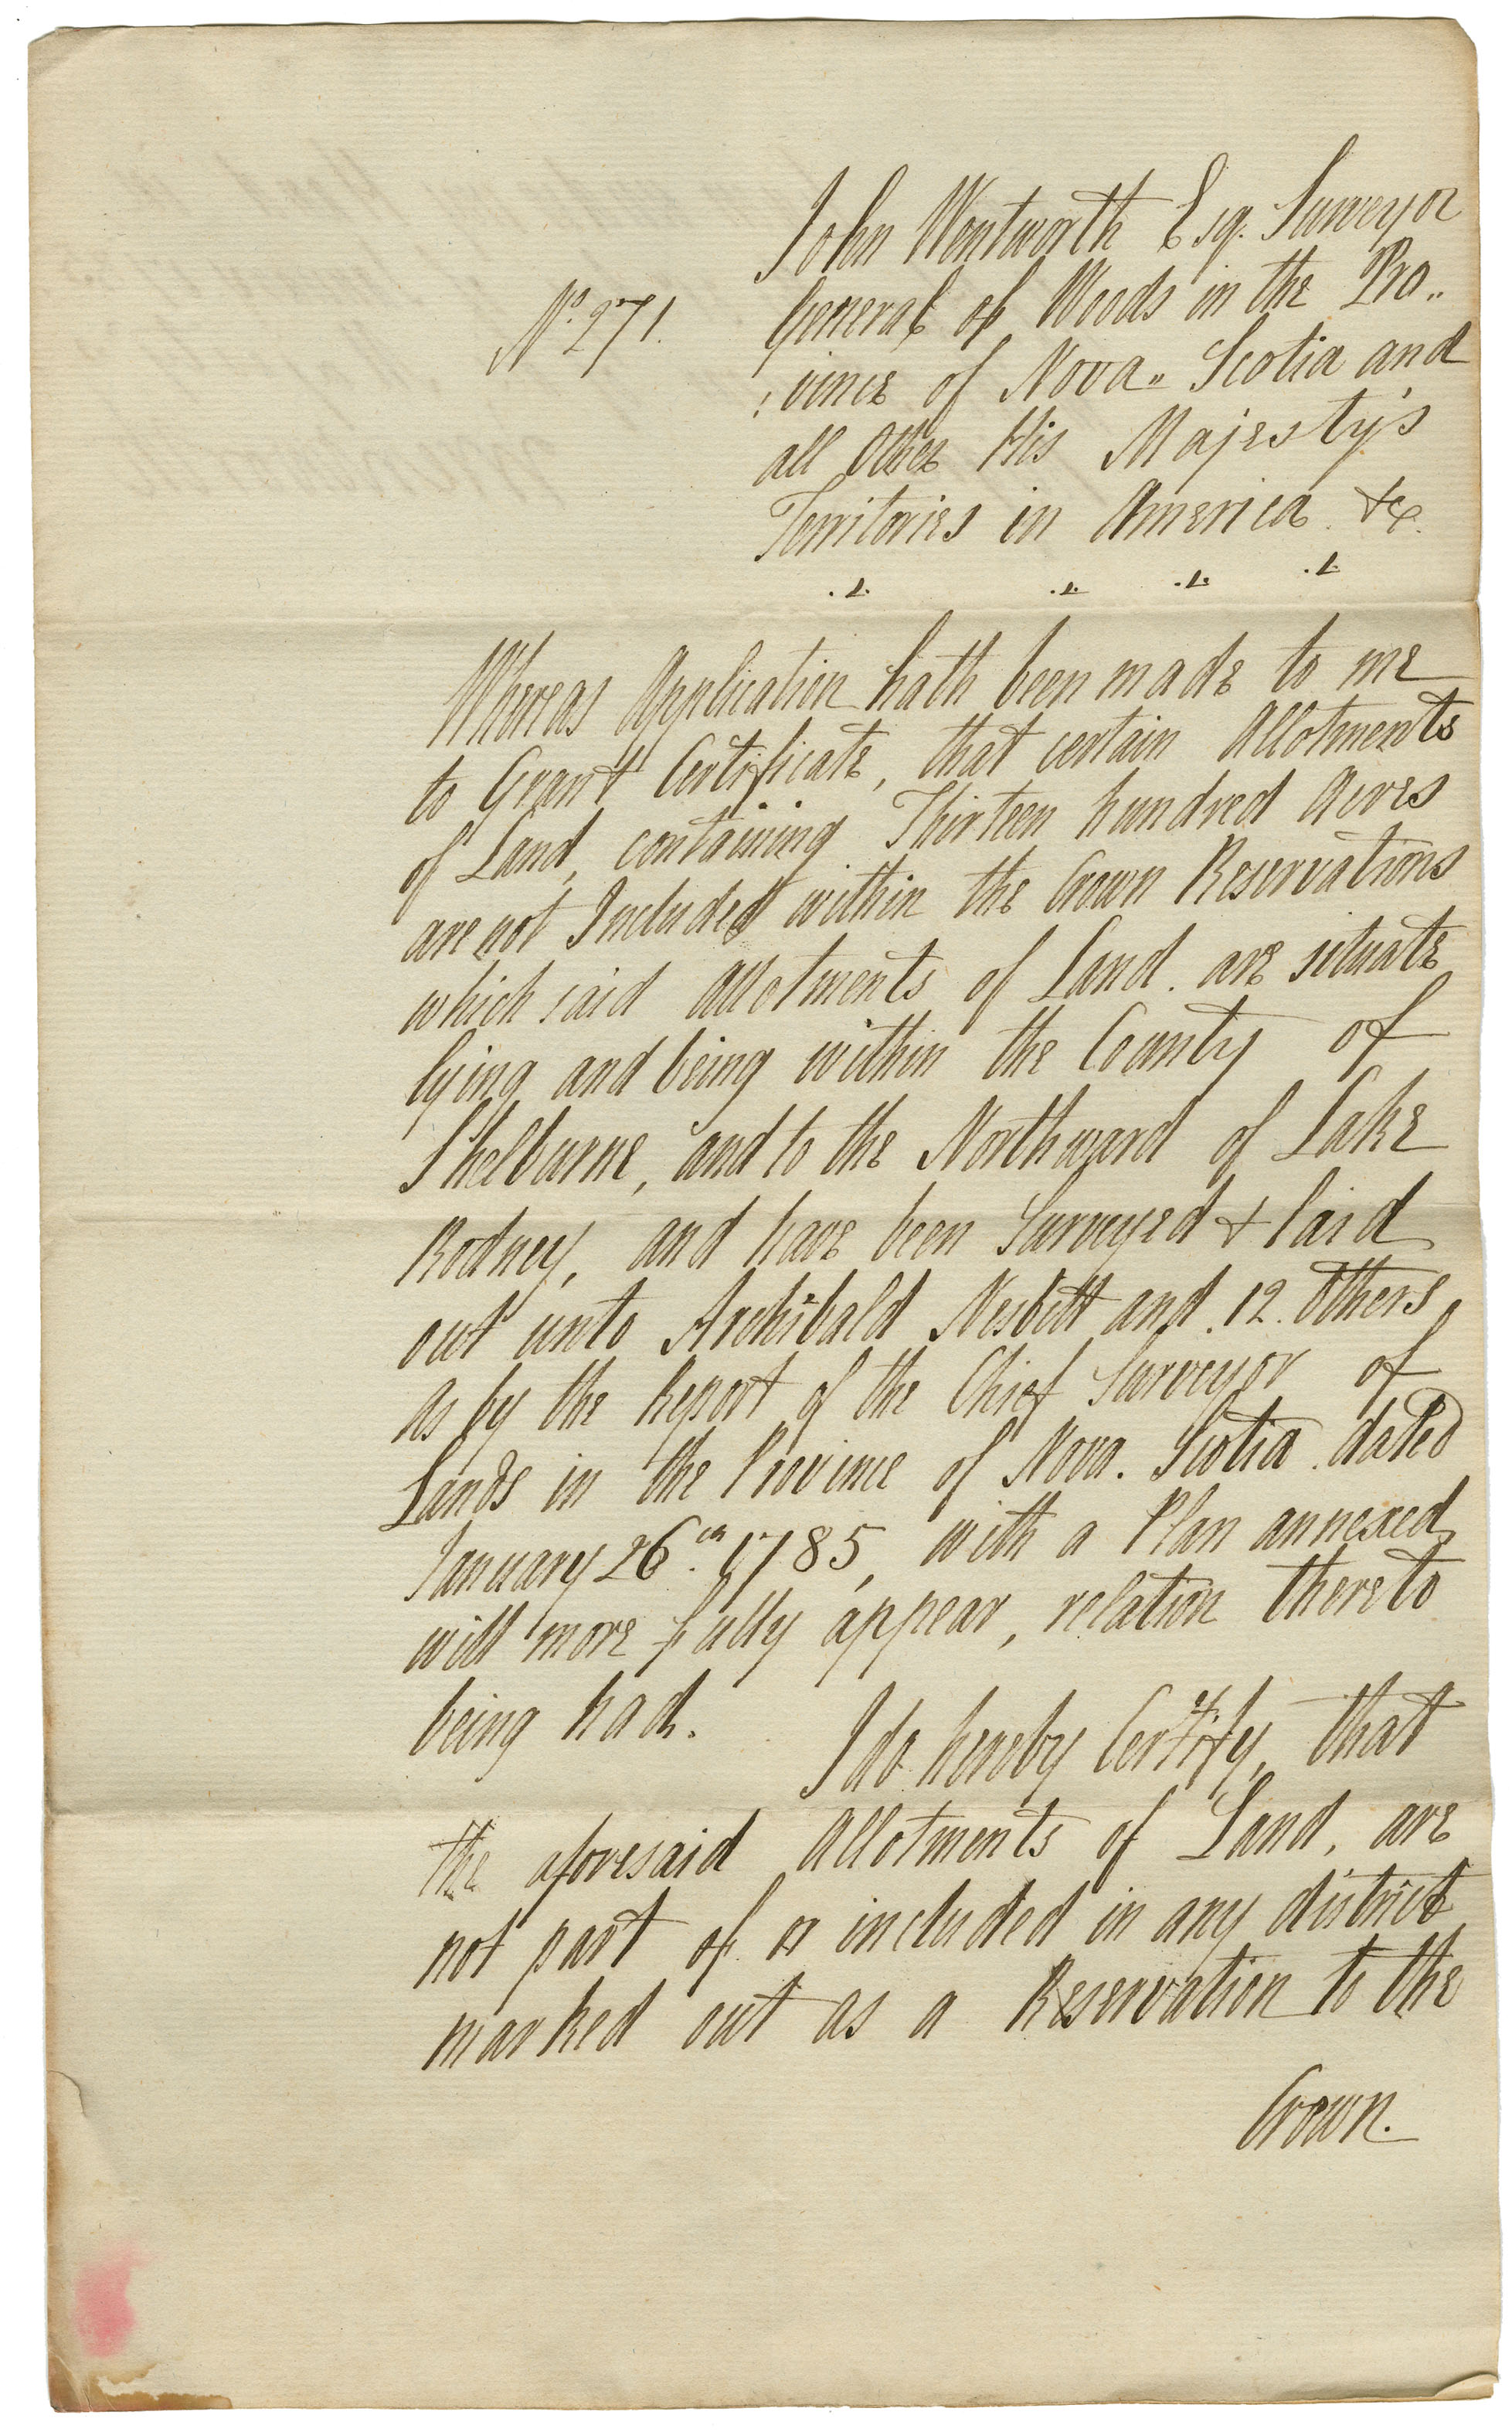 John Wentworth Esq. Surveyor
General of Woods in the Pro„
Nº 271.
: vince of Nova„ Scotia and
all Other His Majesty's
Territories in America. &c.
Whereas Application hath been made to me
to Grant Certificate, that certain Allotments
of Land, containing Thirteen hundred Acres
are not Included within the Crown Reservations
which said Allotments of Land. are situate
lying and being within the County of
Shelburne, and to the Northward of Lake
Rodney, and have been Surveyed & laid
out unto Archibald Nesbitt and .12. Others,
As by the Report of the Chief Surveyor of
Lands in the Province of Nova. Scotia. dated
January 26th. 1785, with a Plan annexed,
will more fully appear, relation thereto
being had.
I do hereby Certify, that
the aforesaid Allotments of Land, are
not part of or included in any district
marked out as a Reservation to the
Crown.